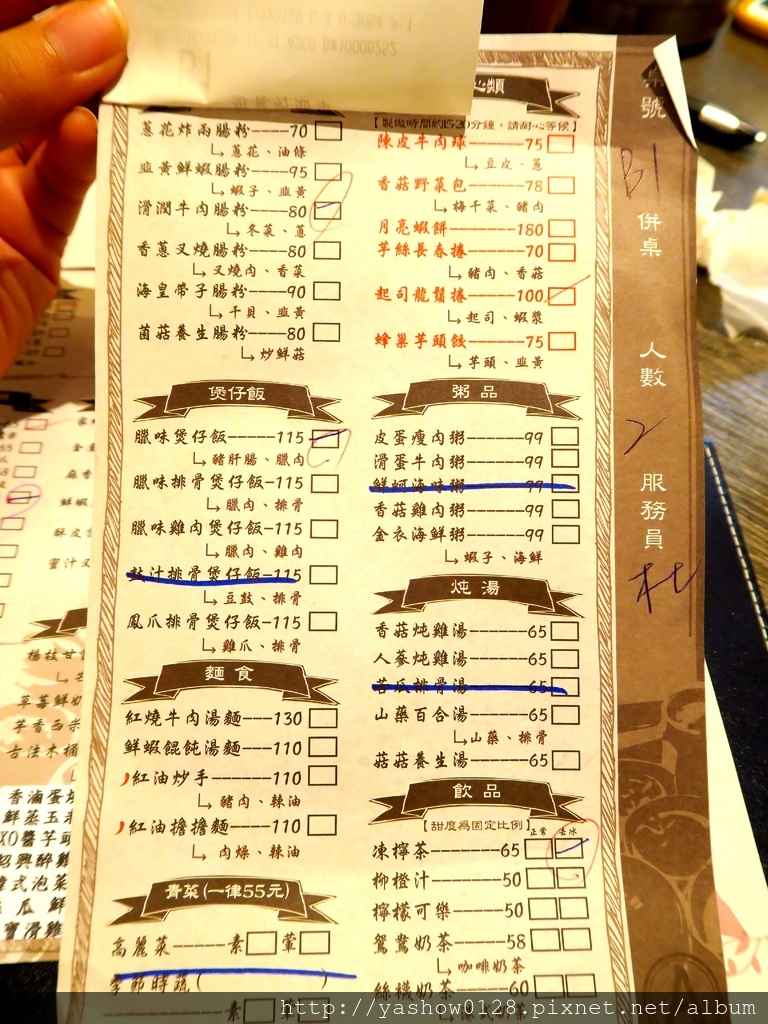 心類
【製做時間約15-20分鐘,請耐心等候】
蔥花炸兩腸粉----70
蔥花、油條
韭黃鮮蝦腸粉----95
蝦子、韭黃
滑潤牛肉腸粉----80
冬菜、蔥
香蔥叉燒腸粉----80
叉燒肉、香菜
海皇帶子腸粉----90
干貝、韭黃
菌菇養生腸粉----80
炒鮮菇
陳皮牛肉球------75
豆皮、蔥
香菇野菜包------78
梅干菜、豬肉
月亮蝦餅-------180
芋絲長春捲------70
豬肉、香菇
起司龍鬚捲-----100
起司、蝦漿
蜂巢芋頭餃------75
芋頭、韭黃
煲仔飯
臘味煲仔飯-----115
豬肝腸、臘肉
臘味排骨煲仔飯-115
臘肉、排骨
臘味雞肉煲仔飯-115
臘肉、雞肉
豉汁排骨煲仔飯-115
豆鼓、排骨
鳳爪排骨煲仔飯-115
雞爪、排骨
麵食
紅燒牛肉湯麵---130
鮮蝦餛飩湯麵---110
紅油炒手-------110
豬肉、辣油
紅油擔擔麵-----110
肉燥、辣油
青菜(一律55元)
高麗菜------素 葷
季節時蔬( )
素 葷
粥品
皮蛋瘦肉粥------99
滑蛋牛肉粥------99
鮮蚵海味粥------99
香菇雞肉粥------99
金衣海鮮粥------99
蝦子、海鮮
炖湯
香菇炖雞湯------65
人蔘炖雞湯------65
苦瓜排骨湯------65
山藥百合湯------65
山藥、排骨
菇菇養生湯------65
飲品
【甜度為固定比例】 正常 去冰
凍檸茶-------65
柳橙汁-------50
檸檬可樂-----50
鴛鴦奶茶-----58
咖啡奶茶
絲襪奶茶-----60
港式奶茶
桌號
B1
併桌
人數
2
服務員
杜
http://yashow0128.pixnet.net/album